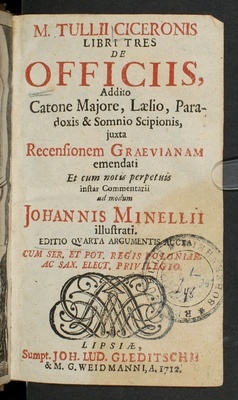 M. TULLII CICERONIS
LIBRI TRES
DE
OFFICIIS,
Addito
Catone Majore, Lælio, Para-
doxis & Somnio Scipionis,
juxta
Recensionem GRAEVIANAM
emendati
Et cum notis perpetuis
instar Commentarii
ad modum
JOHANNIS MINELLII
illustrati.
EDITIO QVARTA ARGUMENTIS AUCTA
CUM SER. ET POT. REGIS POLONIAR.
AC SAX. ELECT. PRIVILEGIO.
LIPSIÆ,
Sumpt. JOH. LUD. GLEDITSCHII
& M. G. WEIDMANNI, A. 1712.